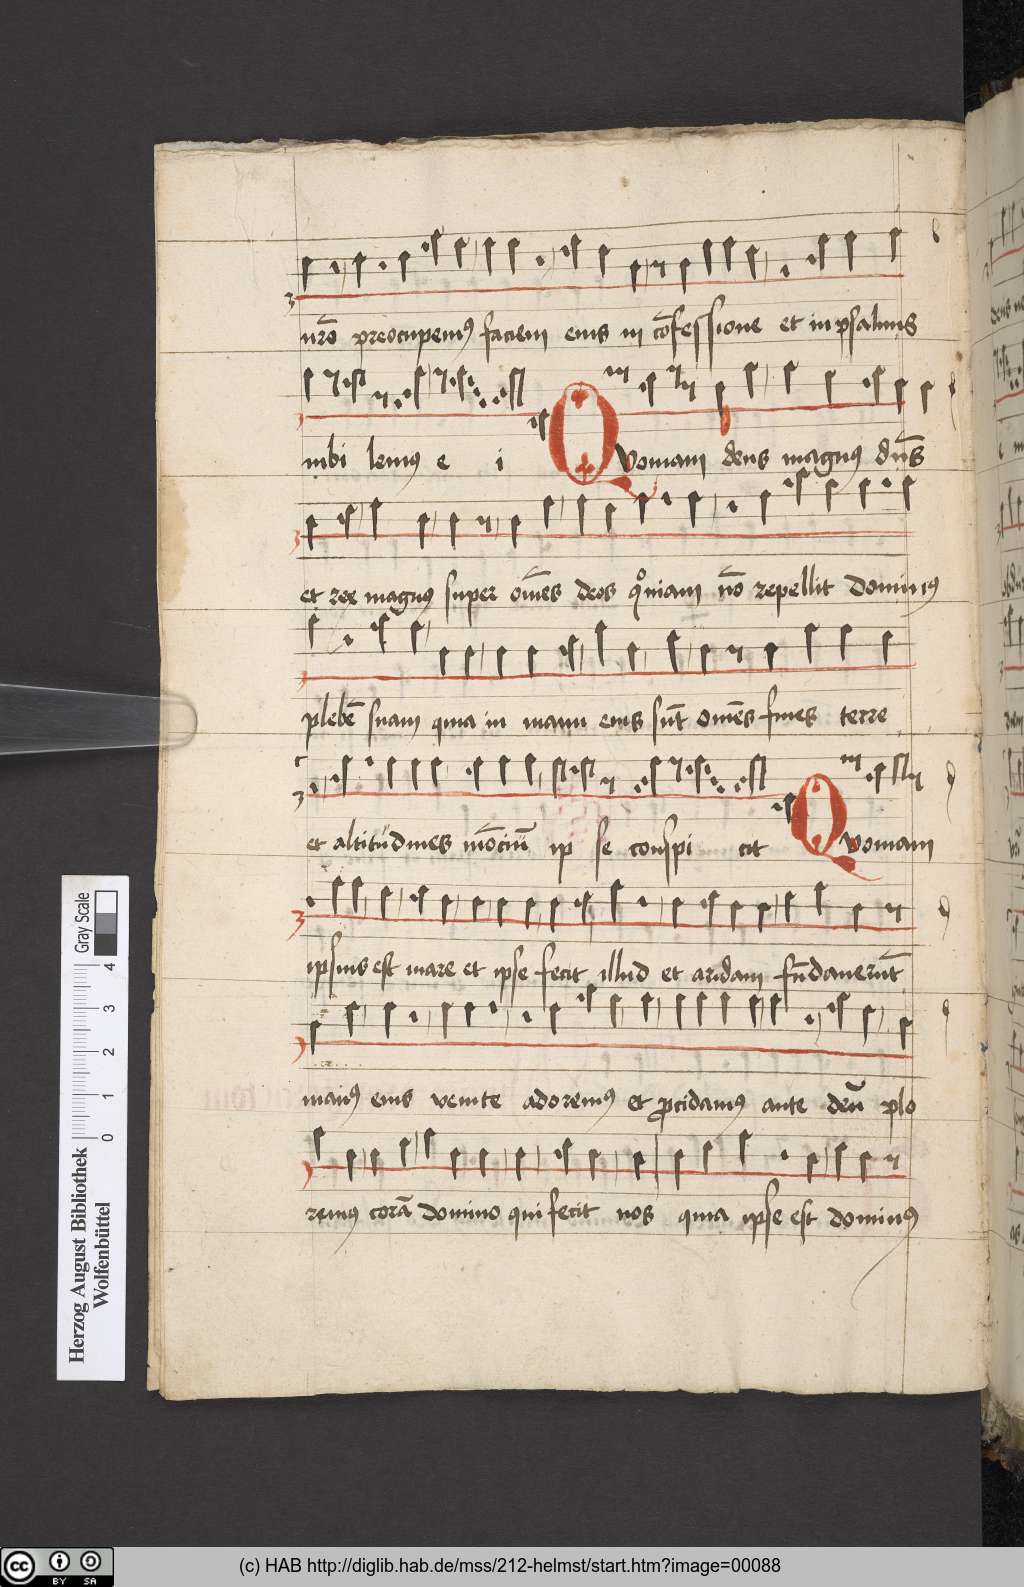 nr̄o preocupemꝰ faciem eius in cōfessione et in psalmis
iubi lemꝰ e i Quoniam deus magnꝰ dn̄s
et rex magnꝰ super om̄es deos qͦniam nō repellit dominꝰ
plebē suam quia in manu eius sūt om̄es fines terre
et altitudines mōciū ip se conspi cit Quoniam
ipsius est mare et ipse fecit illud et aridam fūdauerūt
manꝰ eius venite adoremꝰ et ꝓcidamꝰ ante deū plo
remꝰ corā domino qui fecit nos quia ipse est dominꝰ
Herzog August Bibliothek
Wolfenbüttel
0 1 2 3 4
Gray Scale
cc BY SA
(c) HAB http://diglib.hab.de/mss/212-helmst/start.htm?image=00088